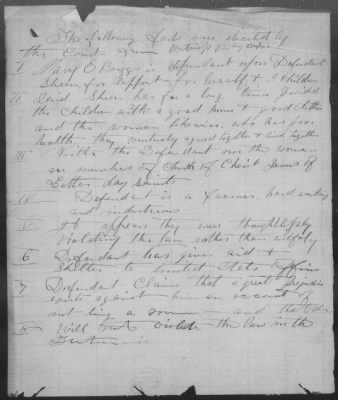 The following facts were elicited by
the Court from
I Mary E Briggs is dependent upon Defendant
Sheen for support for herself & 3 Children
II Said Sheen has for a long time provided
the Children with a good home & good clothes
and the woman likewise, who has poor
health. They mutually agreed together & lived together
III Neither the Defendant nor the woman
are members of Church of Christ Jesus of
Latter day Saints
IV Defendant is a farmer, hard working
and industrious
V It appears they were thoughtlessly
violating the law rather than wilfully
6 Defendant has given aid &
Shelter to United States
7 Defendant Claims that a great prejudice
exists against him on account of
not being a and that he
8 Will not violate the law in the
future